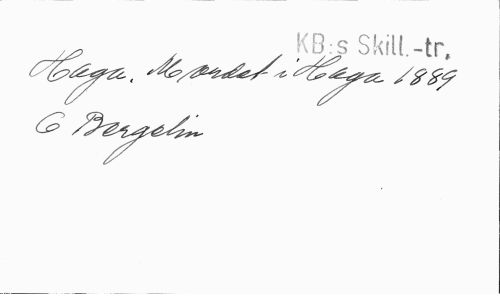 KB:s Skill.-tr.
Haga. Mordet i Haga 1889
C Bergelin